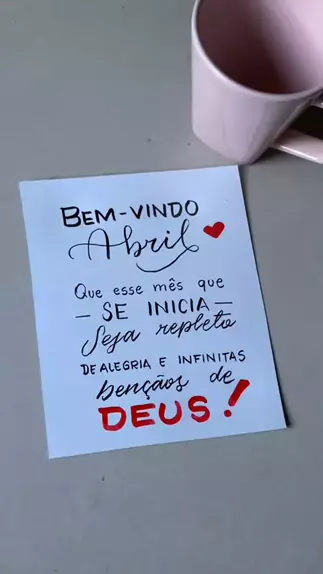 BEM-VINDO
Abril
Que esse mês que
— SE INICIA —
Seja repleto
DE ALEGRIA E INFINITAS
bençãos de
DEUS!